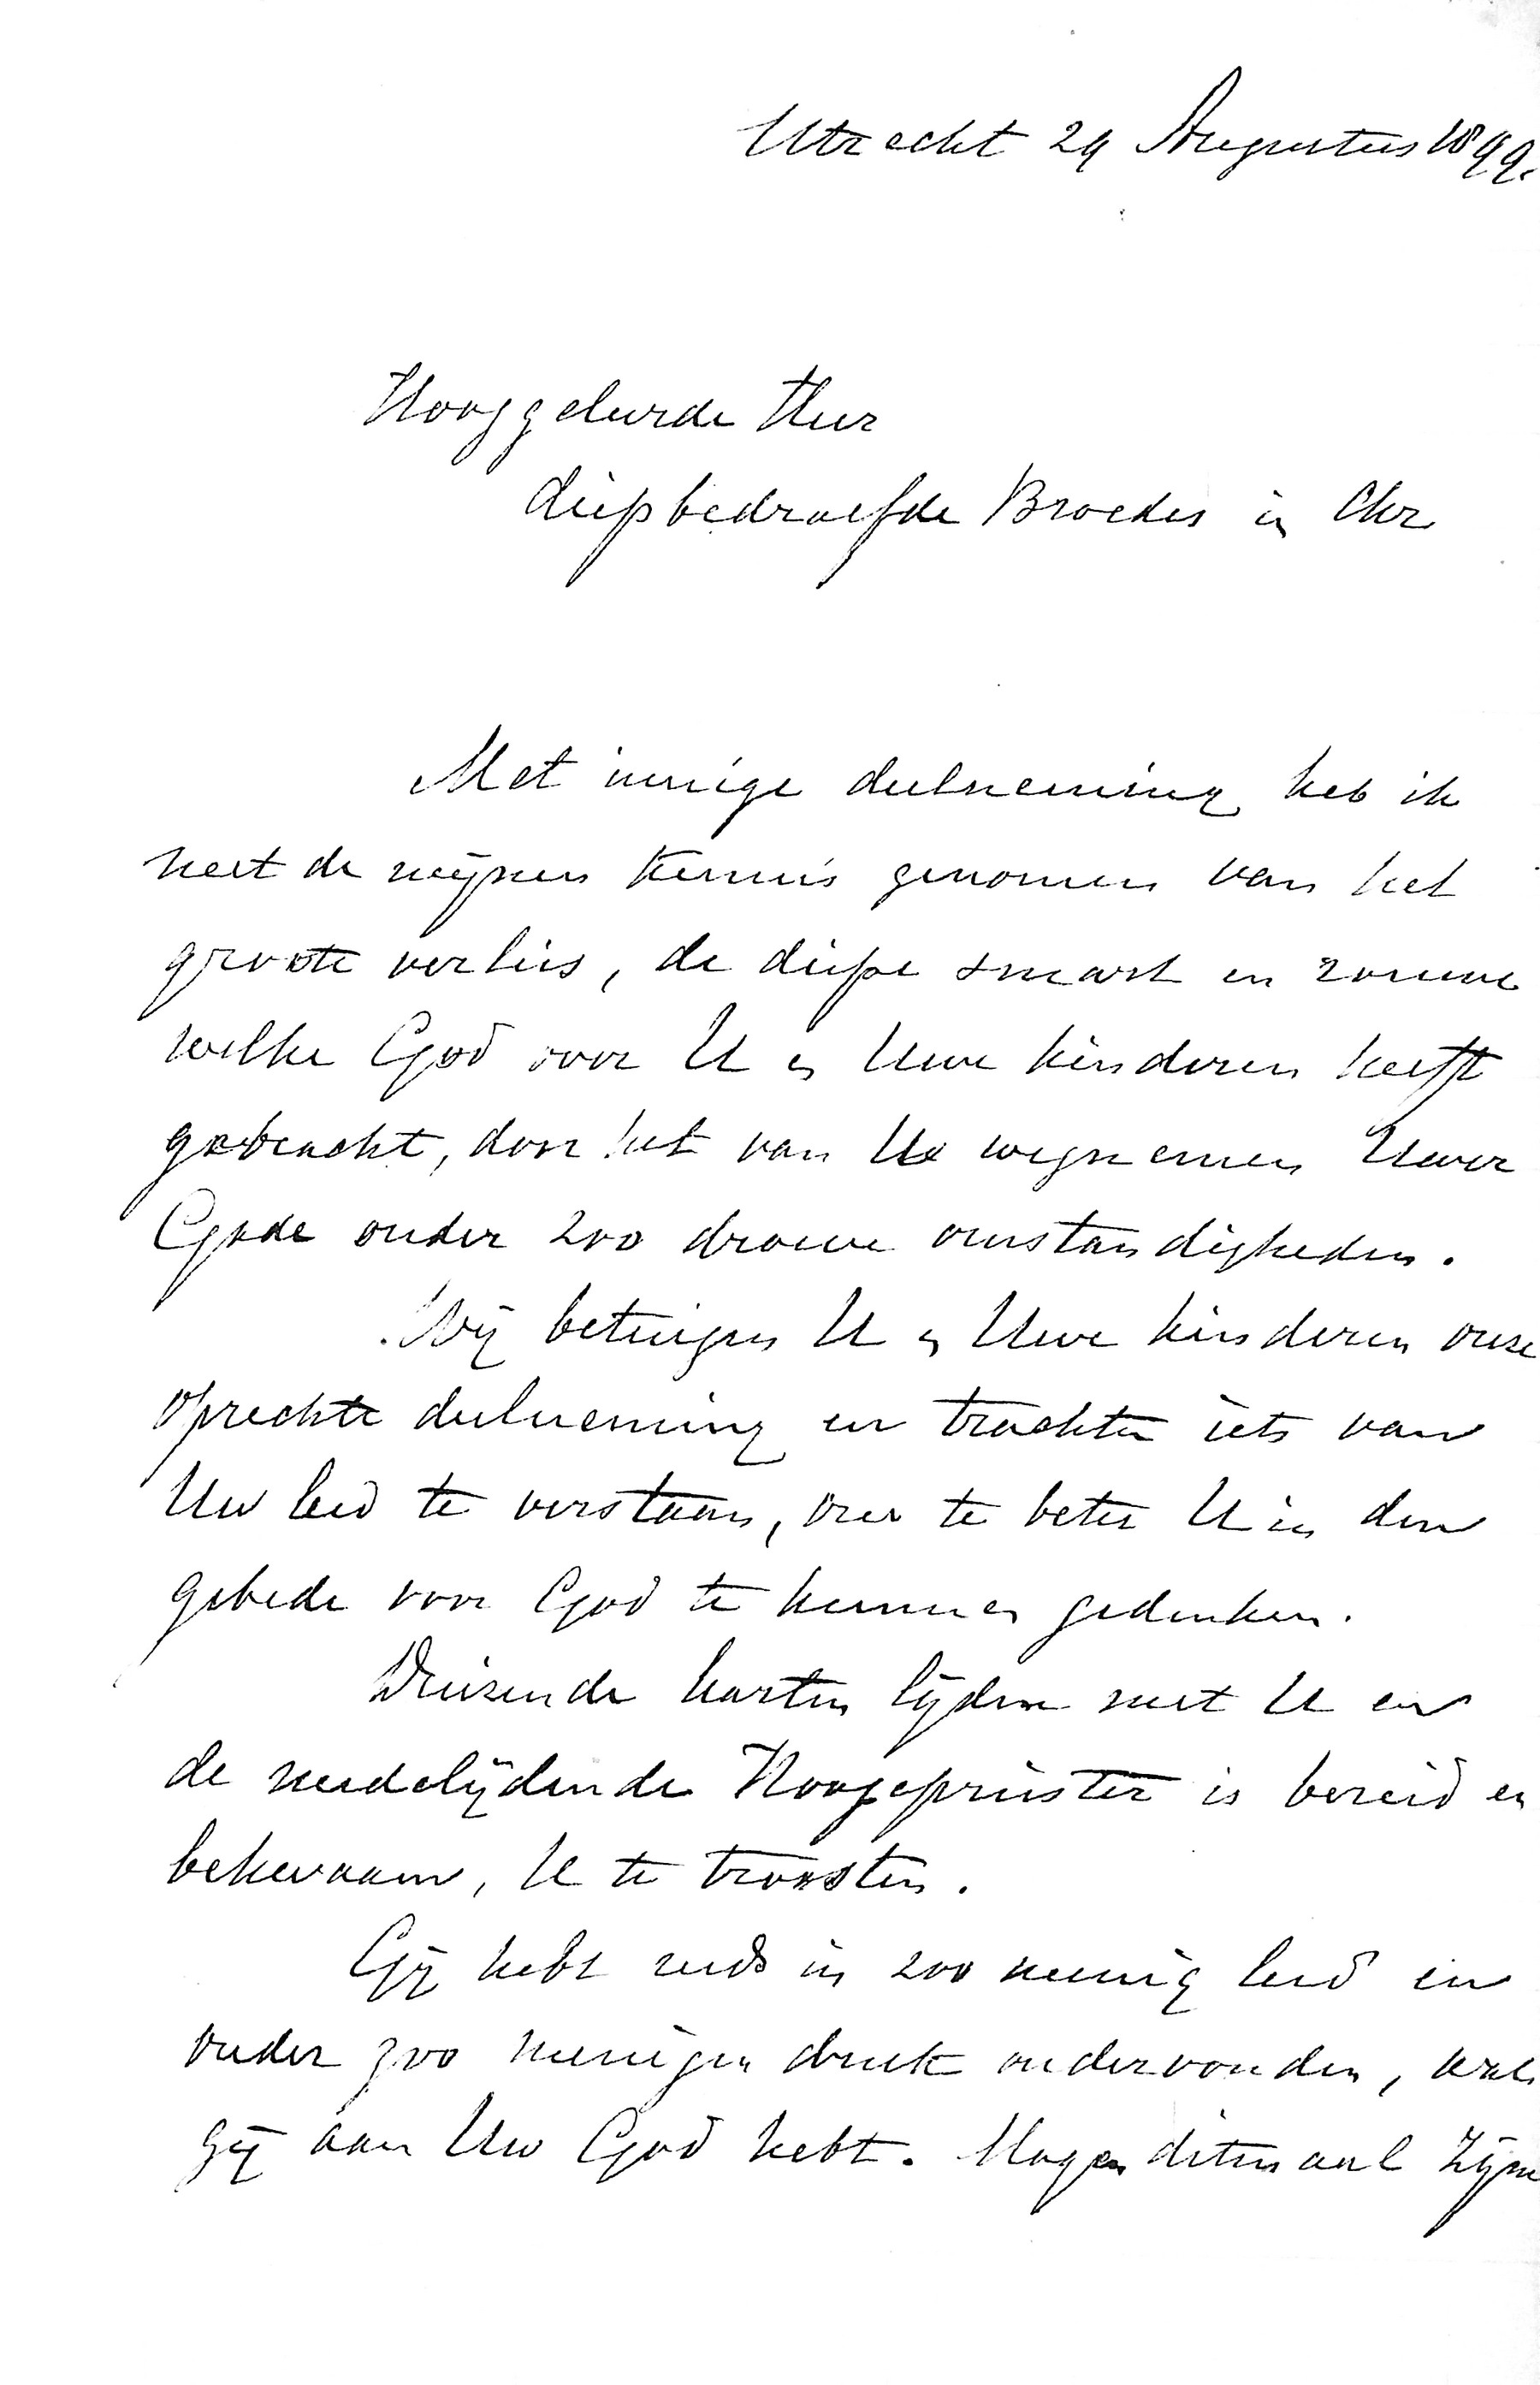 Utrecht 29 Augustus 1899.
Hooggeleerde Heer
diepbedroefde Broeder in Chr
Met innige deelneming heb ik
met de mijnen kennis genomen van het
groote verlies, de diepe smart en rouwe
welke God over U en Uwe kinderen heeft
gebracht, door het van U wegnemen Uwer
Gade onder zoo droeve omstandigheden.
Wij betuigen U en Uwe kinderen onze
oprechte deelneming en trachten iets van
Uw leed te verstaan, om te beter U in den
gebede voor God te kunnen gedenken.
Duizende harten lijden met U en
de medelijdende Hoogepriester is bereid en
bekwaam, U te troosten.
Gij hebt reeds in zoo menig leed en
onder zoo menigen druk ondervonden, wat
gij aan Uw God hebt. Mogen ditmaal Zijne